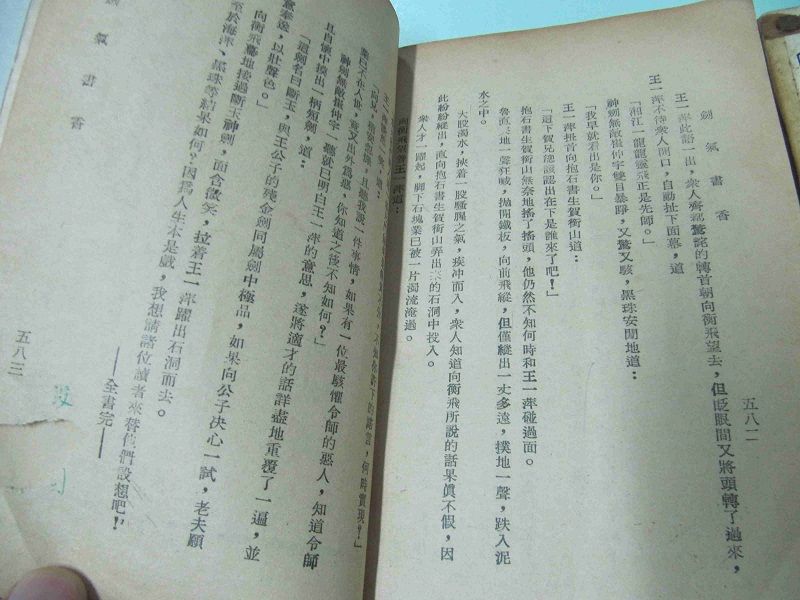 劍氣書香
五八二
王一萍此語一出，衆人齊都驚詫的轉首朝向衡飛望去，但眨眼間又將頭轉了過來，
王一萍不待衆人開口，自動扯下面幕，道
「湘江一龍龍靈飛正是先師。」
神劍無敵崔仲宇雙目暴睜，又驚又駭，黑珠安閒地道：
「我早就看出是你。」
王一萍扭首向抱石書生賀衡山道：
「這下賀兄總該認出在下是誰來了吧！」
抱石書生賀衡山無奈地搖了搖頭，他仍然不知何時和王一萍碰過面。
魯直突地一聲狂喊，拋開鐵板，向前飛縱，但僅縱出一丈多遠，撲地一聲，跌入泥
水之中。
大股濁水，挾着一股騷腥之氣，疾冲而入，衆人知道向衡飛所說的話果眞不假，因
此紛紛縱出，直向抱石書生賀衡山弄出來的石洞中投入。
衆人才一躍起，脚下石塊業已被一片濁流淹過。
向衡飛望着王一萍道：
時實現！」
一件事情，如果有一位最駭懼令師的惡人，知道令師
業已不在人世，善又出外爲惡，你知道之後不知如何？」
神劍無敵崔仲宇一聽就已明白王一萍的意思，遂將適才的話詳盡地重覆了一遍，並
且自懷中摸出一柄短劍，道：
「這劍名曰斷玉，與王公子的殘金劍同屬劍中極品，如果向公子决心一試，老夫願
意奉送，以壯聲色。」
向衡飛驀地接過斷玉神劍，面含微笑，拉着王一萍躍出石洞而去。
至於海萍、黑珠等結果如何？因爲人生本是戲，我想請諸位讀者來替他們設想吧！
——全書完——
劍氣書香
五八三